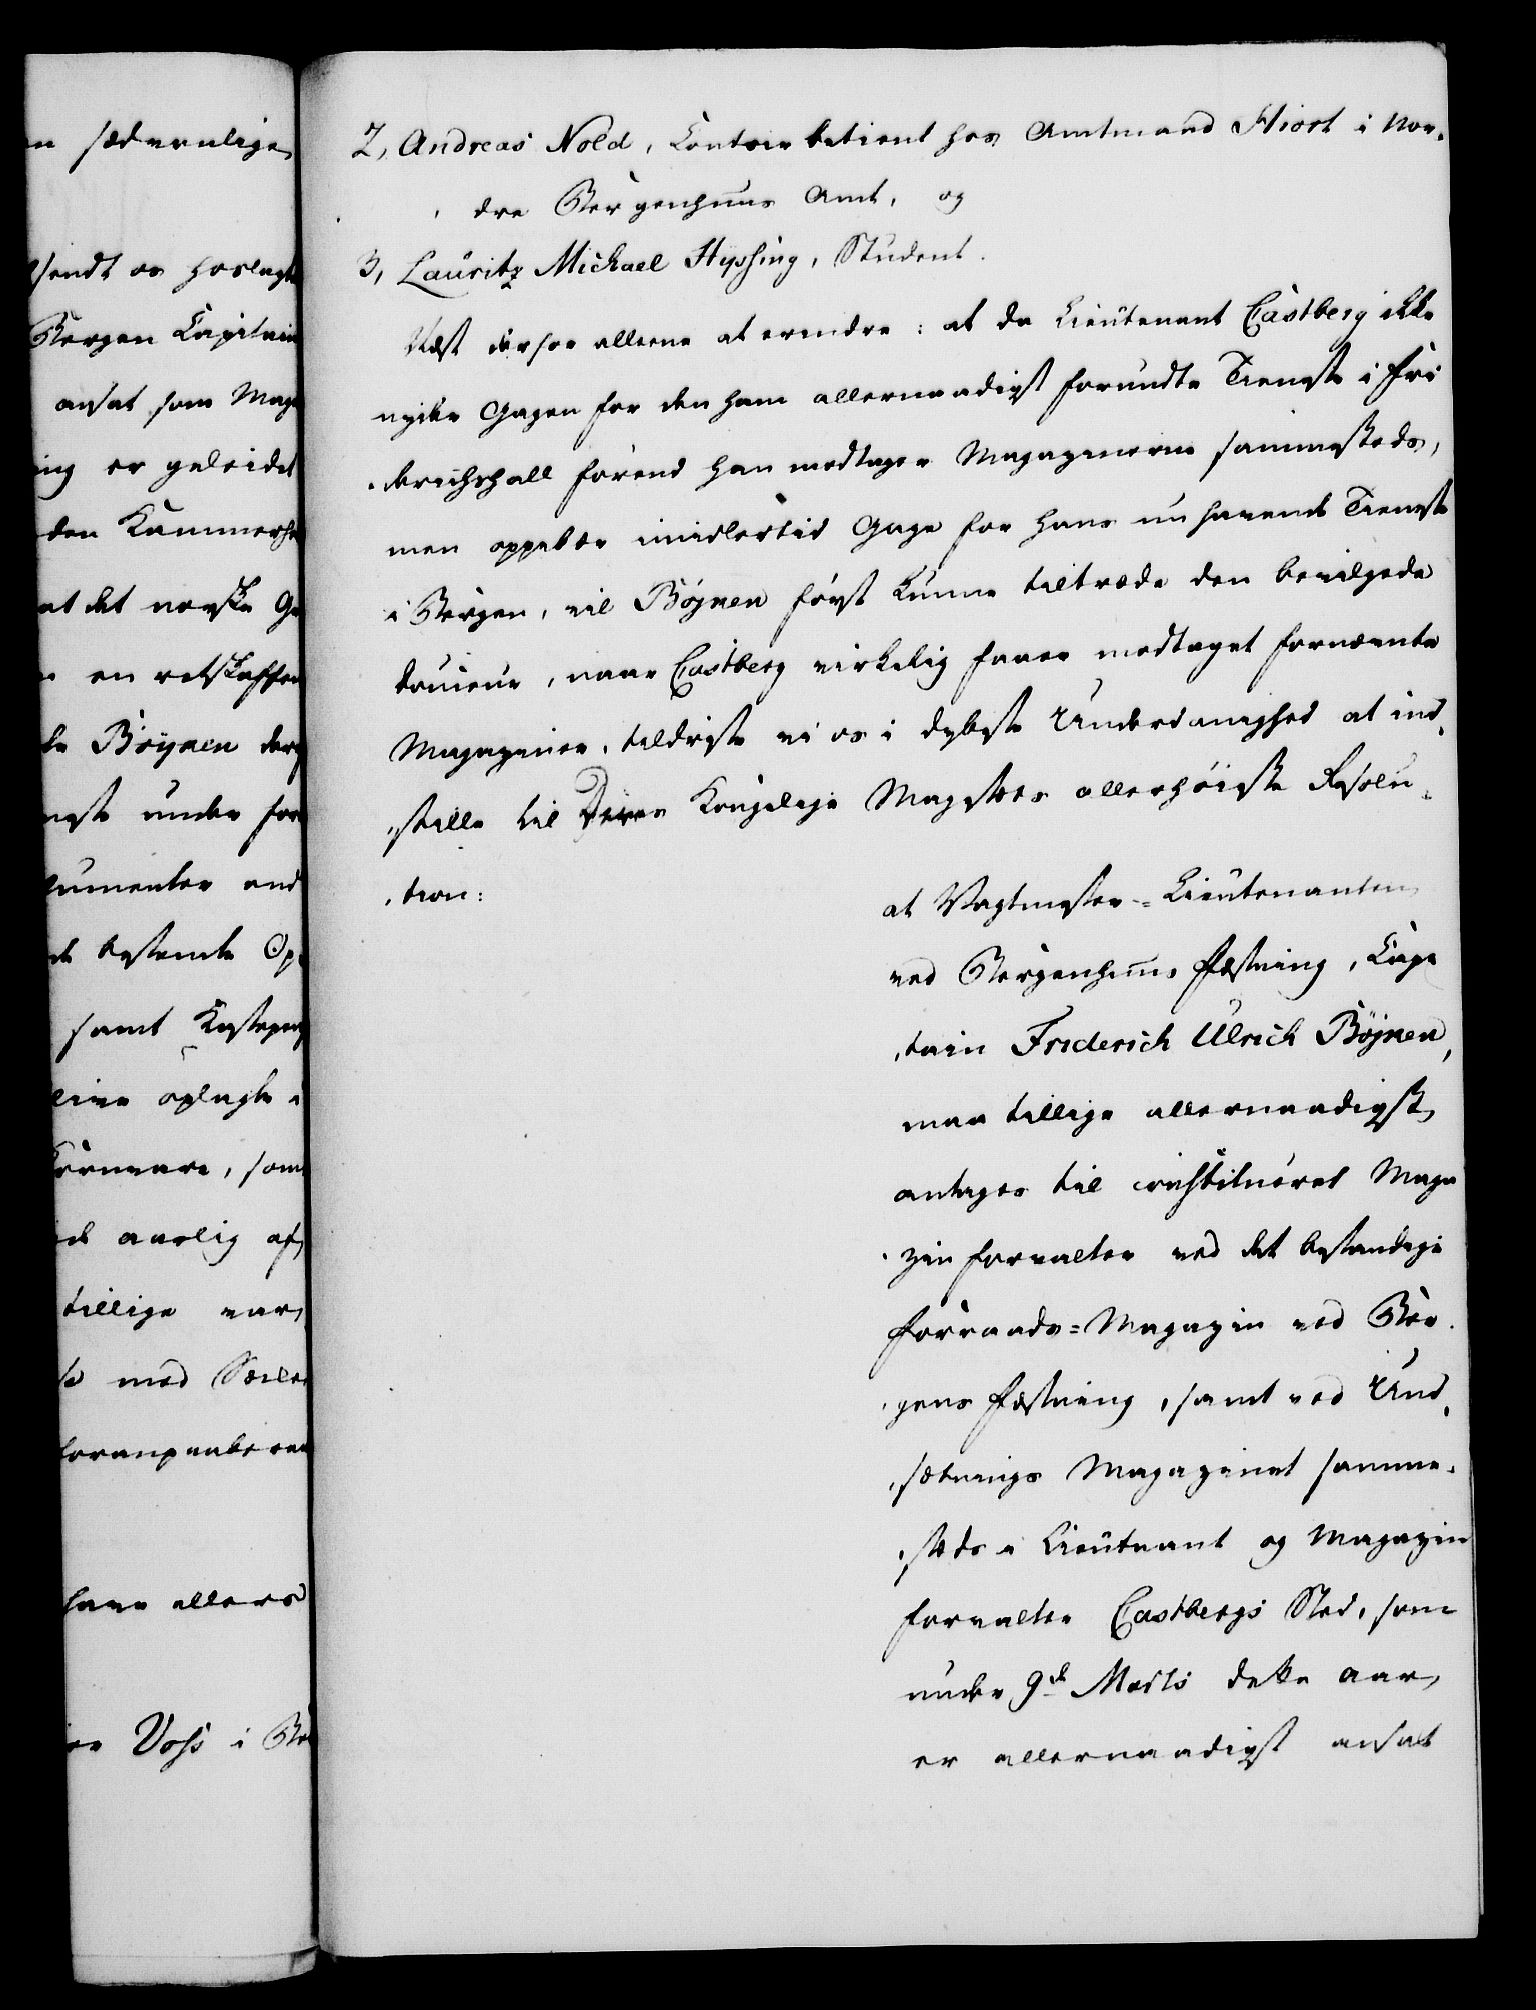 2, Andreas Nold, Contoir betient hos Amtmand Hiort i Nor-
dre Bergenhuus Amt, og
3, Lauritz Michael Hysing, Student.
Næst derfor allene at erindre: at da Lieutenant Castberg ikke
nyder Gagen for den ham allernaadigst forundte Tieneste i Fri
derichshall förend han modtager Magazinerne sammesteds,
men oppebær imidlertid Gage for hans nu havende Tieneste
i Bergen, vil Böynen först kunne tiltræde den bevilgede
Douceur, naar Castberg virkelig faaer modtaget fornævnte
Magaziner, tildriste vi os i dybeste Underdanighed at ind-
stille til Deres Kongelige Majestets allerhöieste Resolu-
tion:
at Vagtmester-Lieutenanten
ved Bergenhuus Fæstning, Capi
tain Friderich Ulrich Böynen,
maa tillige allernaadigst
antages til constitueret Maga
zinforvalter ved det bestandige
Forraads-Magazin ved Ber-
gens Fæstning, samt ved Und-
sætnings Magazinet samme-
steds i Lieutnant og Magazin
forvalter Castbergs Sted, som
under 9de Martii dette Aar
er allernaadigst ansat
sædvanlige
hoslagte
Bergen Capitain
ansat som Mag
ing er geleidet
den Kammerhe
at det norske Ge
en retskaffen
Böynen
under for
samt
oplagte i
som
aarlig af
tillige var
med
have allers
Voss i Be